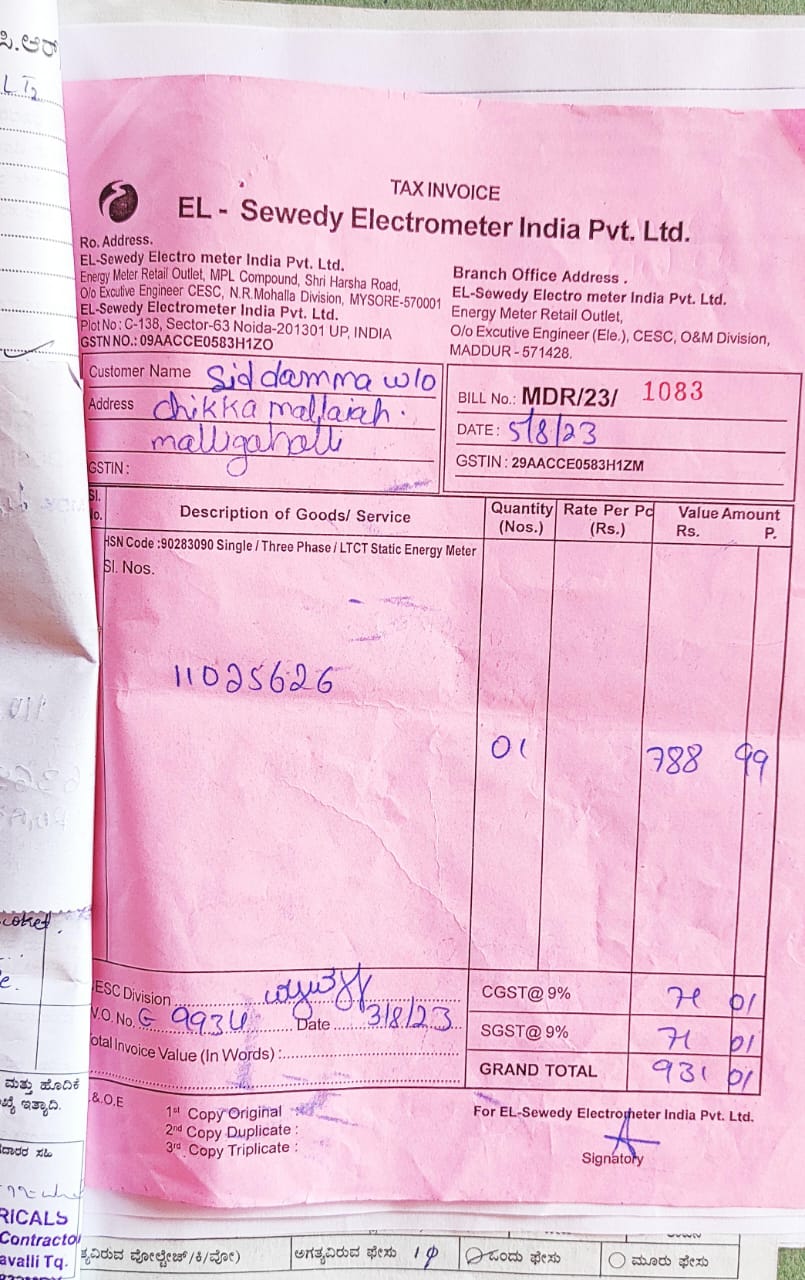 ಪಿ.ಆರ್
LT2
TAX INVOICE
EL - Sewedy Electrometer India Pvt. Ltd.
Ro. Address.
EL-Sewedy Electro meter India Pvt. Ltd.
Energy Meter Retail Outlet, MPL Compound, Shri Harsha Road,
O/o Excutive Engineer CESC, N.R.Mohalla Division, MYSORE-570001
EL-Sewedy Electrometer India Pvt. Ltd.
Plot No : C-138, Sector-63 Noida-201301 UP, INDIA
GSTN NO.: 09AACCE0583H1ZO
Branch Office Address .
EL-Sewedy Electro meter India Pvt. Ltd.
Energy Meter Retail Outlet,
O/o Excutive Engineer (Ele.), CESC, O&M Division,
MADDUR - 571428.
Customer Name Siddamma w/o
Address chikka mallaiah.
malligahalli
GSTIN :
BILL No.: MDR/23/ 1083
DATE : 5/8/23
GSTIN : 29AACCE0583H1ZM
Sl. No. Description of Goods/ Service Quantity (Nos.) Rate Per Pc (Rs.) Value Amount Rs. P.
HSN Code :90283090 Single / Three Phase / LTCT Static Energy Meter
Sl. Nos.
11025626
01 788 99
ESC Division
V.O. No. G 9934 Date 3/8/23
otal Invoice Value (In Words) :
CGST@ 9% 71 01
SGST@ 9% 71 01
GRAND TOTAL 931 01
.&.O.E
1st Copy Original
2nd Copy Duplicate :
3rd Copy Triplicate :
For EL-Sewedy Electrometer India Pvt. Ltd.
Signatory
ಮತ್ತು ಹೊದಿಕೆ
ಇತ್ಯಾದಿ.
RICALS
Contracto
avalli Tq.
ಅಗತ್ಯವಿರುವ ಫೇಸು 1φ ಒಂದು ಫೇಸು ಮೂರು ಫೇಸು